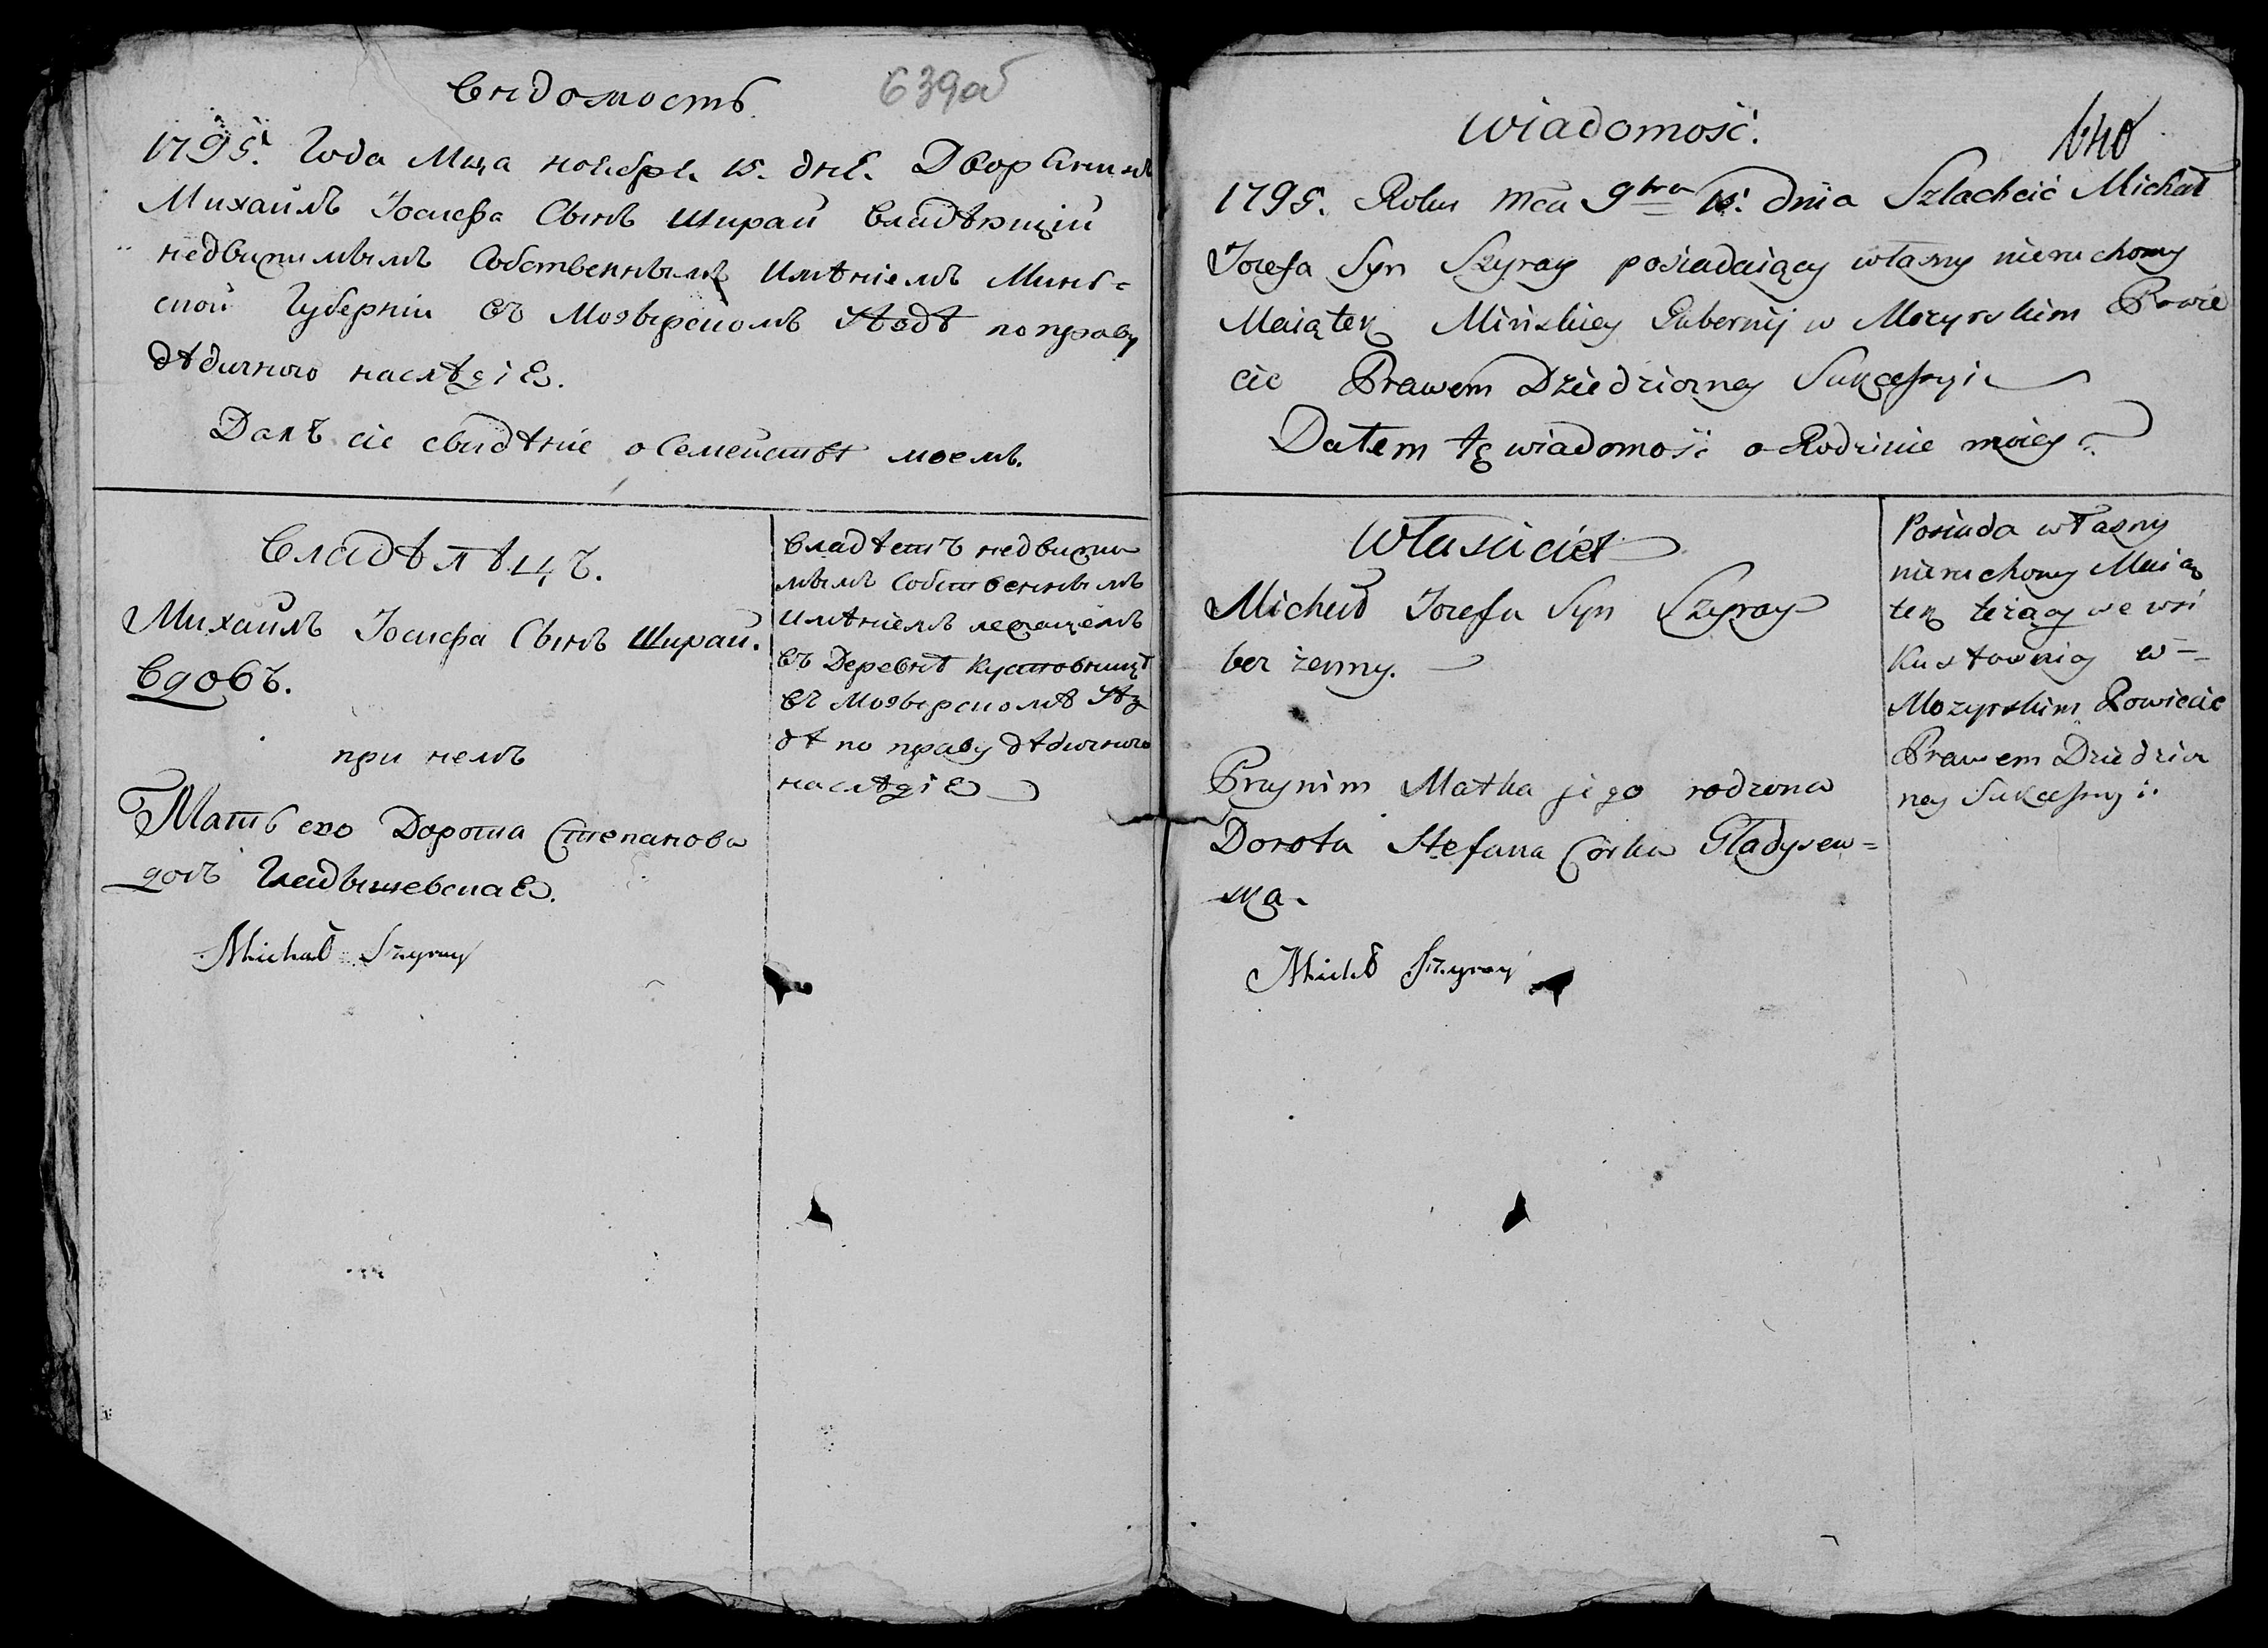 Вѣдомость
639об
1795. Года Мца ноебре 15. дне. Дворенинъ
Михаилъ Іосифа Сынъ Ширай Владѣющій
недвижимымъ Собственнымъ Имѣніемъ Минъ=
ской Губерніи въ Мозырскомъ Уѣздѣ по праву
дѣдичного наслѣдіе.
Далъ сіе свидѣніе о Семействѣ моемъ.
Владѣлѣцъ.
Михаилъ Іосифа Сынъ Ширай.
Вдовъ.
при немъ
Мать ево Дорота Степанова
дочъ Гладышевскае.
Michał Szyray
Владѣетъ недвижи
мымъ Собственнымъ
имѣніемъ лежащемъ
въ Деревнѣ Кустовницѣ
въ Мозырскомъ Уѣз
дѣ по праву дѣдичного
наслѣдіе
Wiadomość.
640
1795. Roku Mca 9bra 15. dnia Szlachcic Michał
Jozefa Syn Szyray posiadaiący własny nieruchomy
Maiątek Minskiey Gubernij w Mozyrskim Powie
cie Prawem Dziedziczney Sukcessyi
Dałem tę wiadomość o Rodzinie moiey
Własciciel
Michał Jozefa Syn Szyray
bez żenny.
Przynim Matka jego rodzona
Dorota Stefana Corka Gładysew=
ska.
Michał Szyray
Posiada własny
nieruchomy Maią
tek leżący we wsi
Kustownicy w
Mozyrskim Powiecie
Prawem Dziedzicz
ney Sukcessyi.